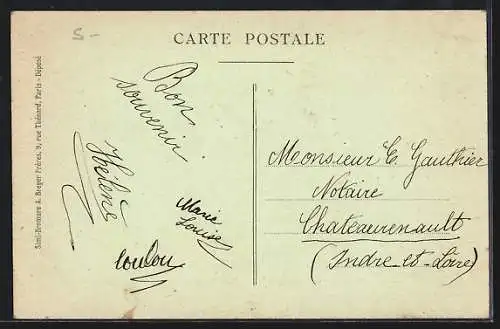 5-
CARTE POSTALE
Bon
souvenir
Hélène
Marie
Louise
Loulou
Monsieur C. Gauthier
Notaire
Chateaurenault
(Indre-et-Loire)
A. Breger Frères, 9, rue Thénard, Paris - Déposé